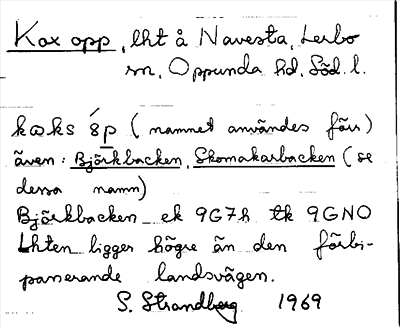 Kax opp, lht å Navesta, Lerbo
sn, Oppunda hd, Söd. l.
kɑks ṍp (namnet användes förr)
även: Björkbacken, Skomakarbacken (se
dessa namn)
Björkbacken ek 9G7h tk 9GNO
Lhten ligger högre än den förbi-
passerande landsvägen.
S. Strandberg 1969